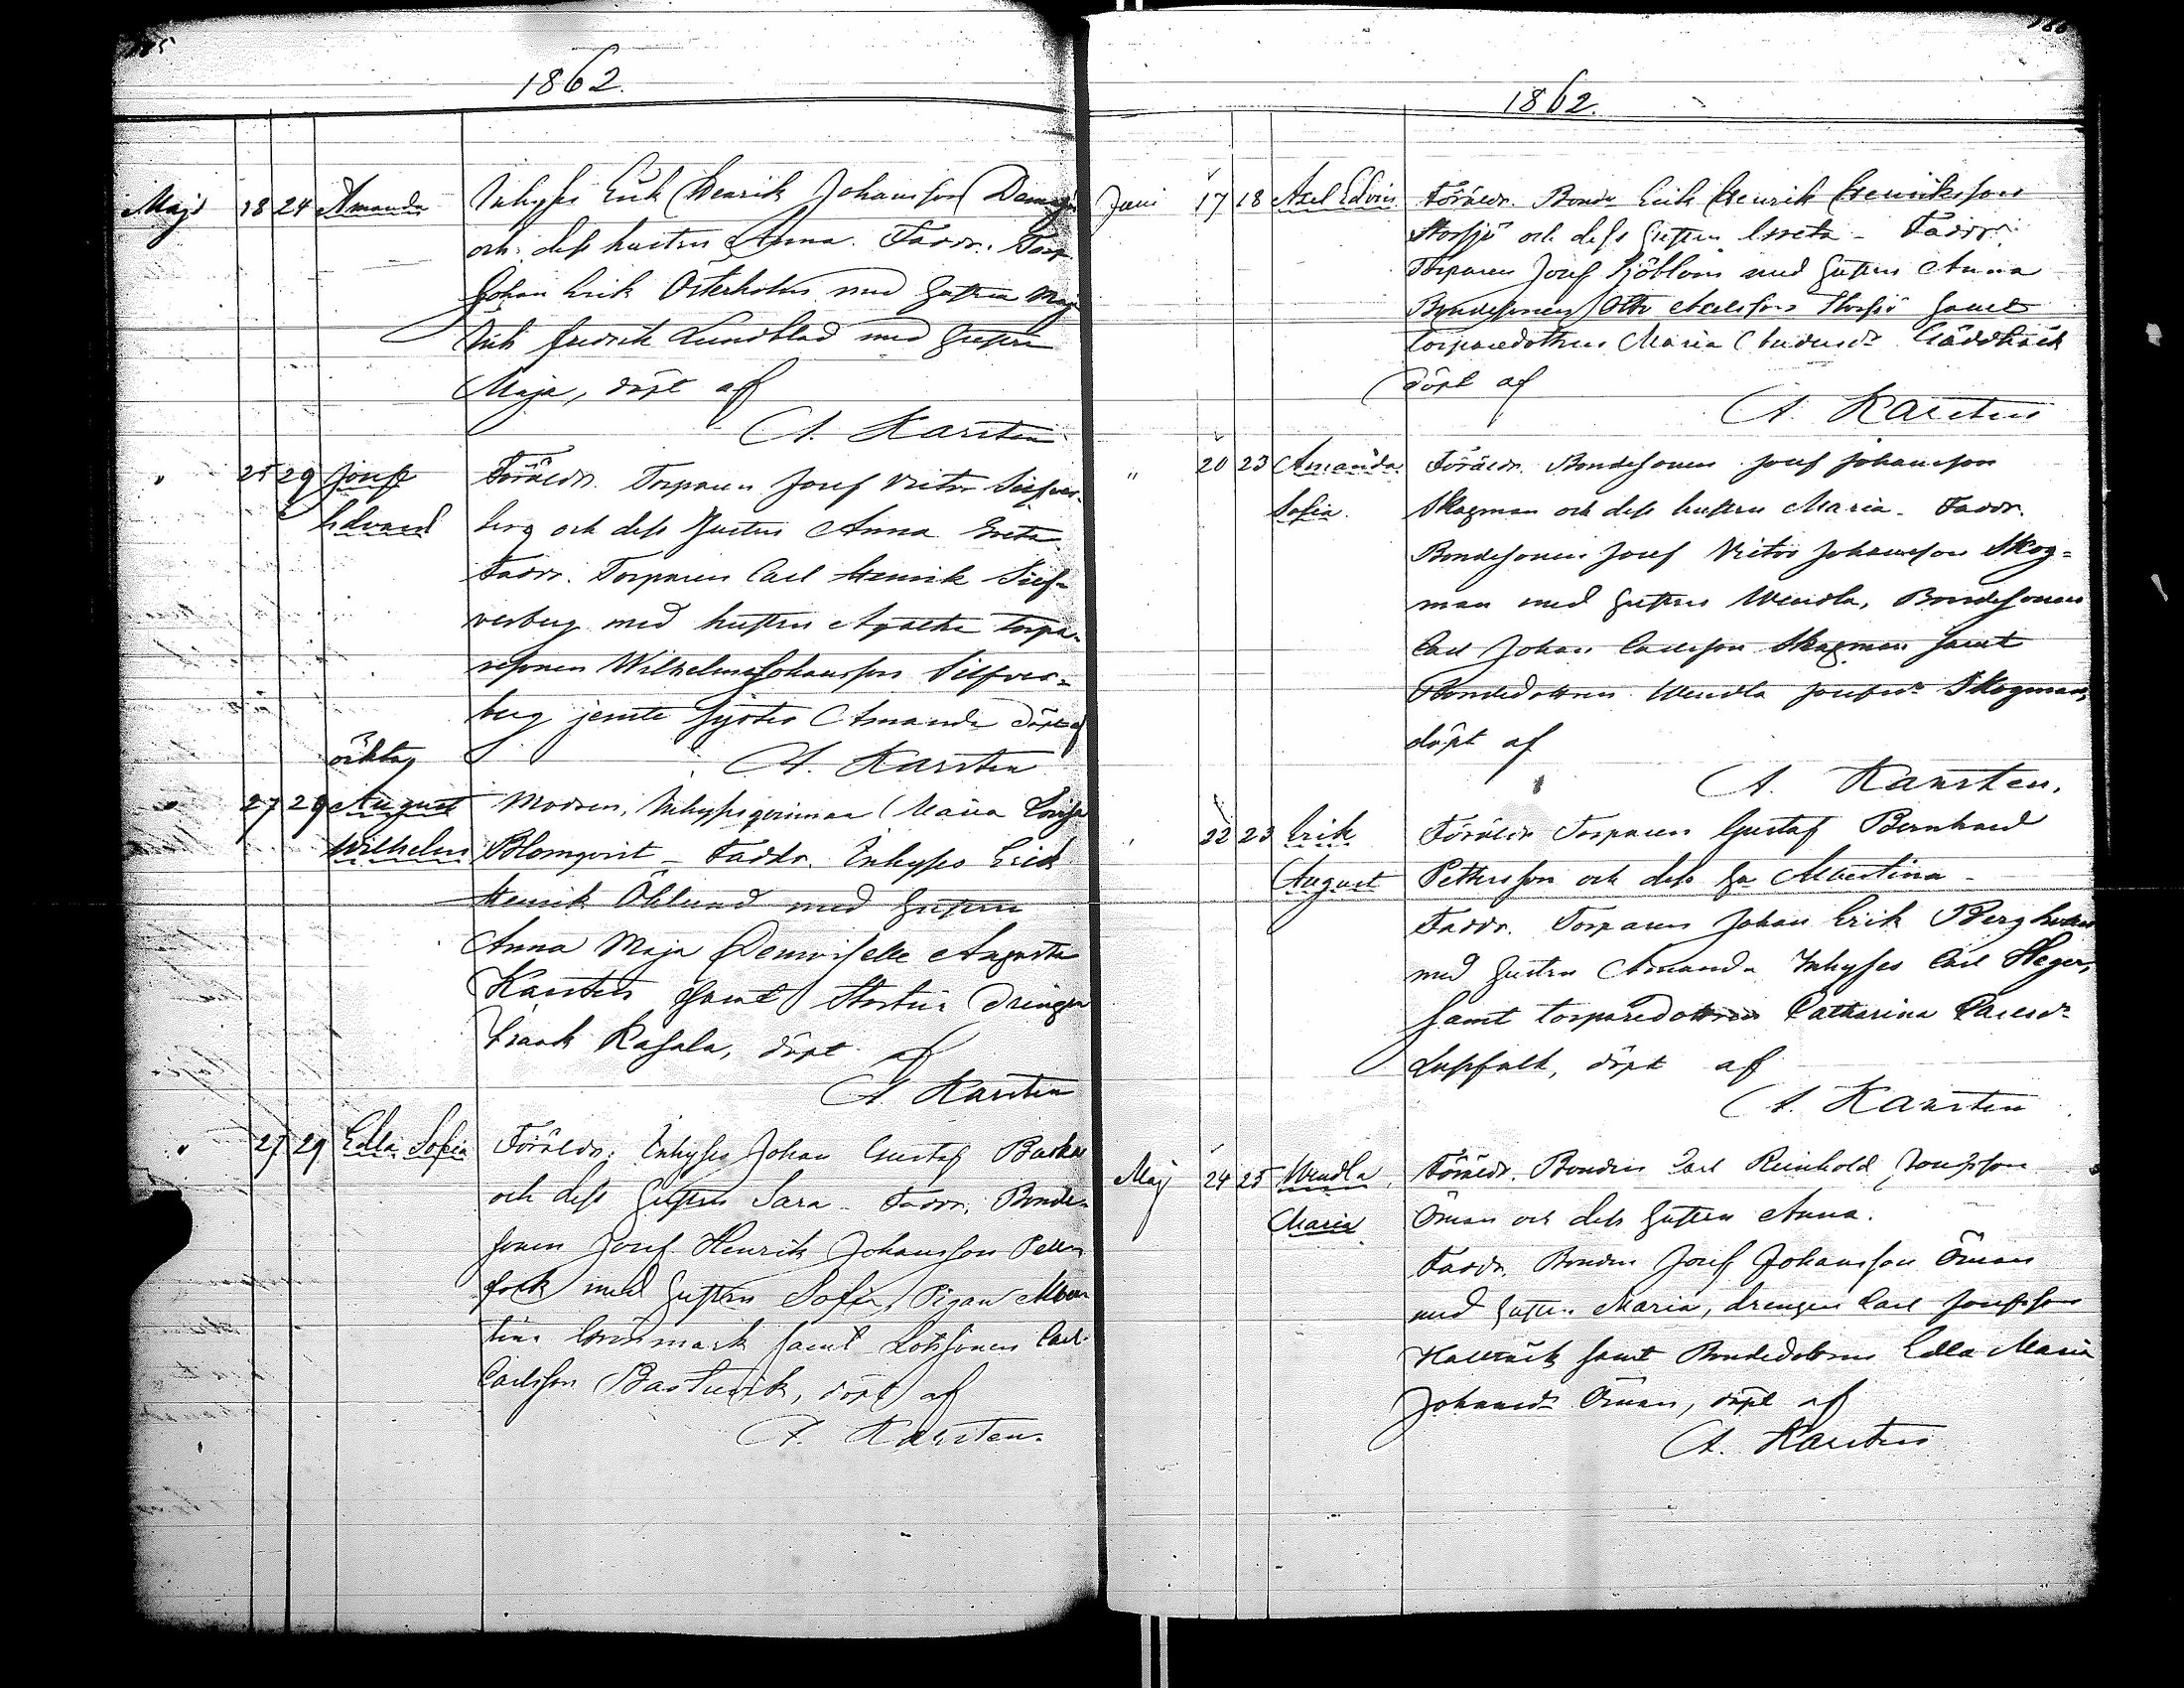 185
1862.
Maji 18 24 Amanda Inhyses Erik Henrik Johansson
och dess hustru Anna. Faddr. Torp
Johan Erik Österholm med hustru Maja
Inh Fredrik Lundblad med hustru
Maja, döpt af
A. Karsten
" 25 29 Josef Föräldr. Torparen Josef Victor Silfver-
Edvard berg och dess hustru Anna Greta
Faddr. Torparen Carl Henrik Silf-
verberg med hustru Agatha torpa-
resonen Wilhelm Johansson Silfver-
berg jemte syster Amanda döpt af
A. Karsten
oäkta
" 27 29 August Modren, Inhysesqvinnan Maria Lovisa
Wilhelm Blomqvist - Faddr. Inhyses Erik
Henrik Öhlund med hustru
Anna Maja Demoiselle Augusta
Karsten samt drängen
Isaak Kasala, döpt af
A. Karsten
" 27 29 Edla Sofia Föräldr. Inhyses Johan Gustaf
och dess hustru Sara - Faddr. Bonde-
sonen Josef Henrik Johansson
med hustru Sofia, Pigan Alber
tina Grönmark samt Lotssonen Carl
Carlsson Bastuvik, döpt af
A. Karsten.
186
1862.
Juni 17 18 Axel Edvin Föräldr. Bonden Erik Henrik Henriksson
Storsjö och dess hustru Greta - Faddr.
Torparen Josef Sjöblom med hustru Anna
Bondesonen Otto Axelsson Storsjö samt
torparedottren Maria
döpt af
A. Karsten
" 20 23 Amanda Föräldr. Bondesonen Josef Johansson
Sofia. Skogman och dess hustru Maria - Faddr.
Bondesonen Josef Victor Johansson Skog-
man med hustru Wendla, Bondesonen
Carl Johan Carlsson Skogman samt
Bondedottren Wendla Josefsdr Skogman,
döpt af
A. Karsten.
" 22 23 Erik Föräldr Torparen Gustaf Bernhard
August Pettersson och dess hu Albertina -
Faddr. Torparen Johan Erik Berg
med hustru Amanda Inhyses Carl Heger,
samt torparedottren Catharina Carlsdr
döpt af
A. Karsten
Maj 24 25 Wendla Föräldr. Bonden Carl Reinhold Josefsson
Maria Öman och dess hustru Anna.
Faddr. Bonden Josef Johansson Öman
med hustru Maria, drengen Carl Josefsson
samt Bondedottren Edla Maria
Johansdr Öman, döpt af
A. Karsten